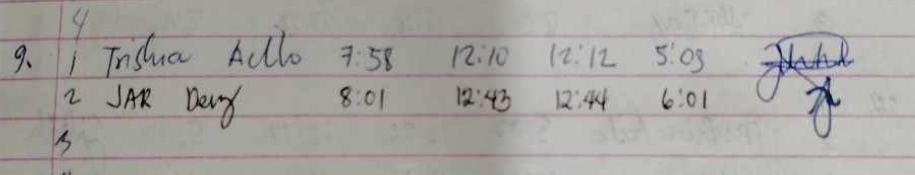 4
9. 1 Trisha Aello 7:58 12:10 12:12 5:03
2 JAR Deng 8:01 12:43 12:44 6:01
3